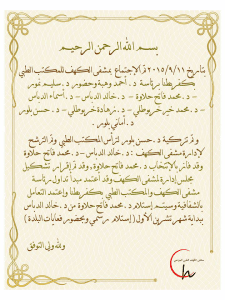 بسم الله الرحمن الرحيم
بتاريخ ٢٠١٥/٩/١١ تم الإجتماع بمشفى الكهف للمكتب الطبي
كفريطنا برئاسة د. أحمد وهبة وحضور د. سليم نمور
- د. محمد فاتح حلاوة - د. خالد الدباس - د. أسماء الدباس
- د. محمد خير خربوطلي - د. زهادة خربوطلي - د. حسن بلور
د. أماني بلور.
وتم تزكية د. حسن بلور لترأس المكتب الطبي وتم الترشح
لإدارة مشفى الكهف: د. خالد الدباس - د. محمد فاتح حلاوة
وقد فاز بالإنتخاب د. محمد فاتح حلاوة، وقد تم إقرار تشكيل
مجلس إدارة لمشفى الكهف وقد أعتمد مبدأ تداول رئاسة
مشفى الكهف والمكتب الطبي كفريطنا وإعتمد التعامل
بالشفافية وسيتم إستلام د. محمد فاتح حلاوة من د. خالد الدباس
ببداية شهر تشرين الأول (إستلام رسمي وبحضور فعاليات البلدة)
والله ولي التوفيق